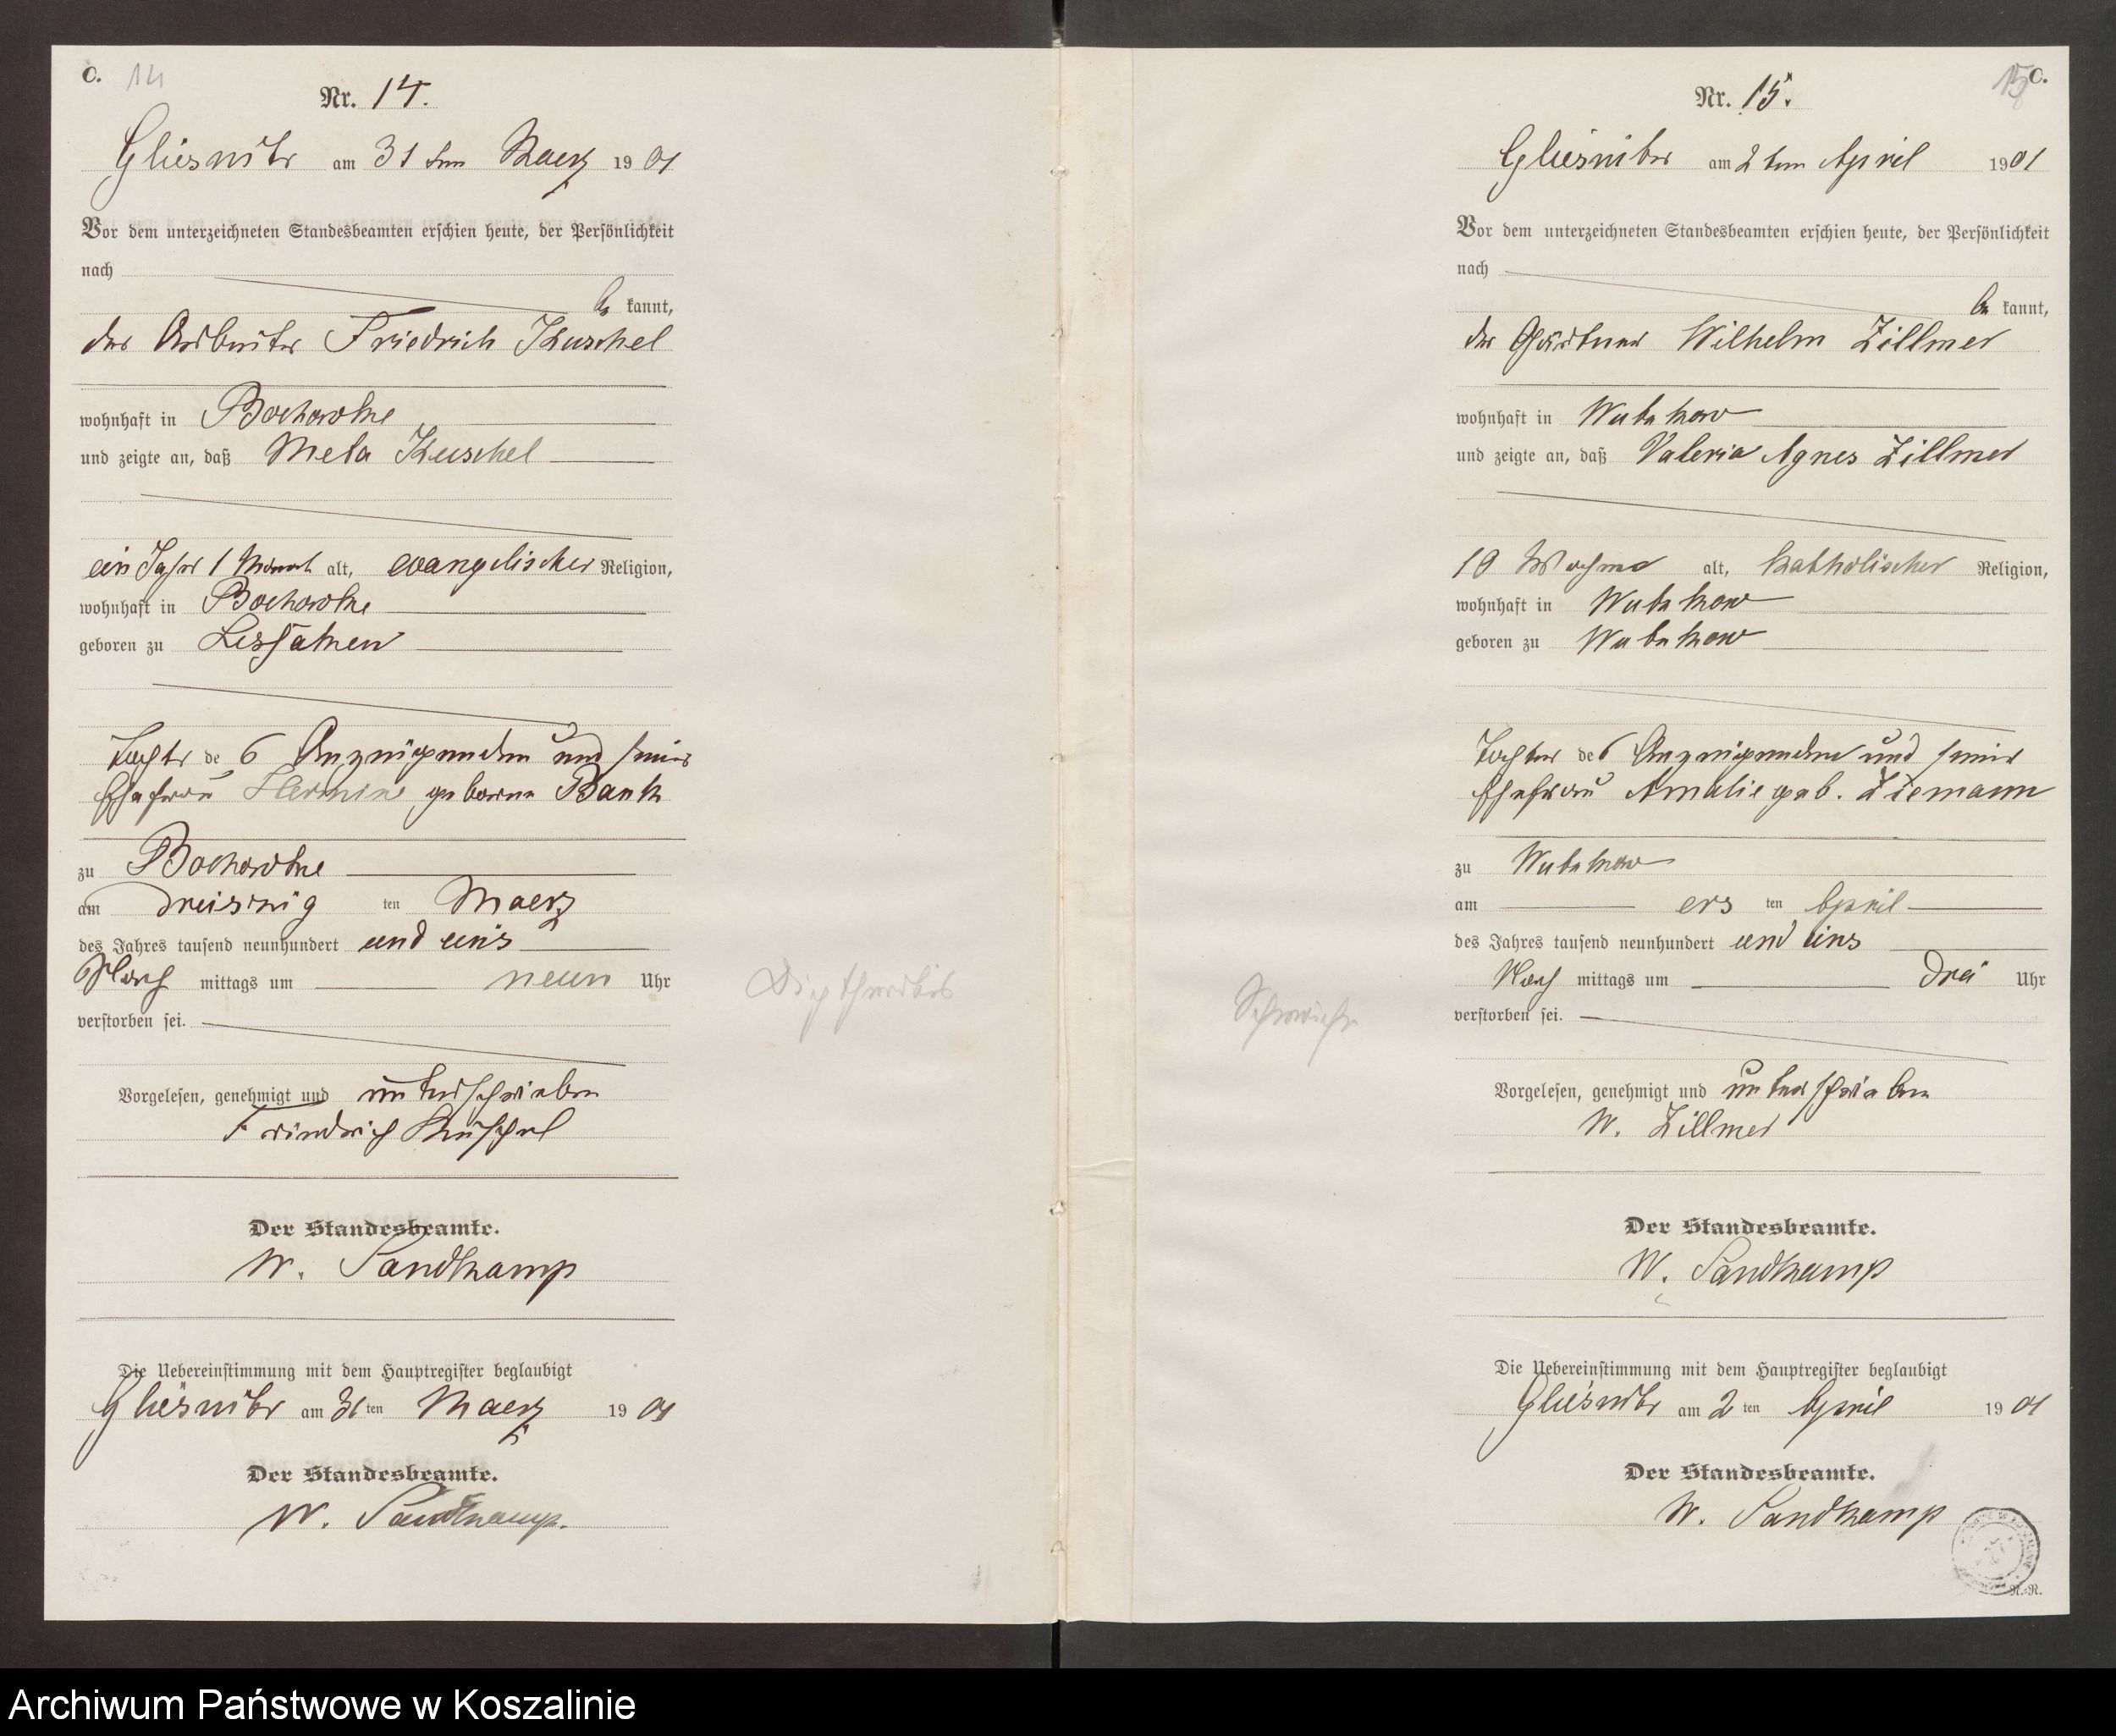 C. 14
Nr. 14.
Gliesnitz am 31 ten Maerz 19 01
Vor dem unterzeichneten Standesbeamten erschien heute, der Persönlichkeit
nach
be kannt,
der Arbeiter Friedrich Kuschel
wohnhaft in Bochowke
und zeigte an, daß Meta Kuschel
ein Jahr 1 Monat alt, evangelischer Religion,
wohnhaft in Bochowke
geboren zu
Tochter de s Anzeigenden und seiner
Ehefrau Hermine geborne Bank
zu Bochowke
am dreissig ten Maerz
des Jahres tausend neunhundert und eins
Nach mittags um neun Uhr
verstorben sei.
Diphtheritis
Vorgelesen, genehmigt und unterschrieben
Friedrich Kuschel
Der Standesbeamte.
W. Sandkamp
Die Uebereinstimmung mit dem Hauptregister beglaubigt
Gliesnitz am 31 ten Maerz 19 01
Der Standesbeamte.
W. Sandkamp.
15 C.
Nr. 15.
Gliesnitz am 2 ten April 19 01
Vor dem unterzeichneten Standesbeamten erschien heute, der Persönlichkeit
nach
be kannt,
der Gärtner Wilhelm Zillmer
wohnhaft in Wutzkow
und zeigte an, daß Valeria Agnes Zillmer
Wochen alt, katholischer Religion,
wohnhaft in Wutzkow
geboren zu Wutzkow
Tochter de s Anzeigenden und seiner
Ehefrau Amalie geb. Ziemann
zu Wutzkow
am ers ten April
des Jahres tausend neunhundert und eins
Nach mittags um drei Uhr
verstorben sei.
Schwäche
Vorgelesen, genehmigt und unterschrieben
W. Zillmer
Der Standesbeamte.
W. Sandkamp
Die Uebereinstimmung mit dem Hauptregister beglaubigt
Gliesnitz am 2 ten April 19 01
Der Standesbeamte.
W. Sandkamp
R.-R.
Archiwum Państwowe w Koszalinie